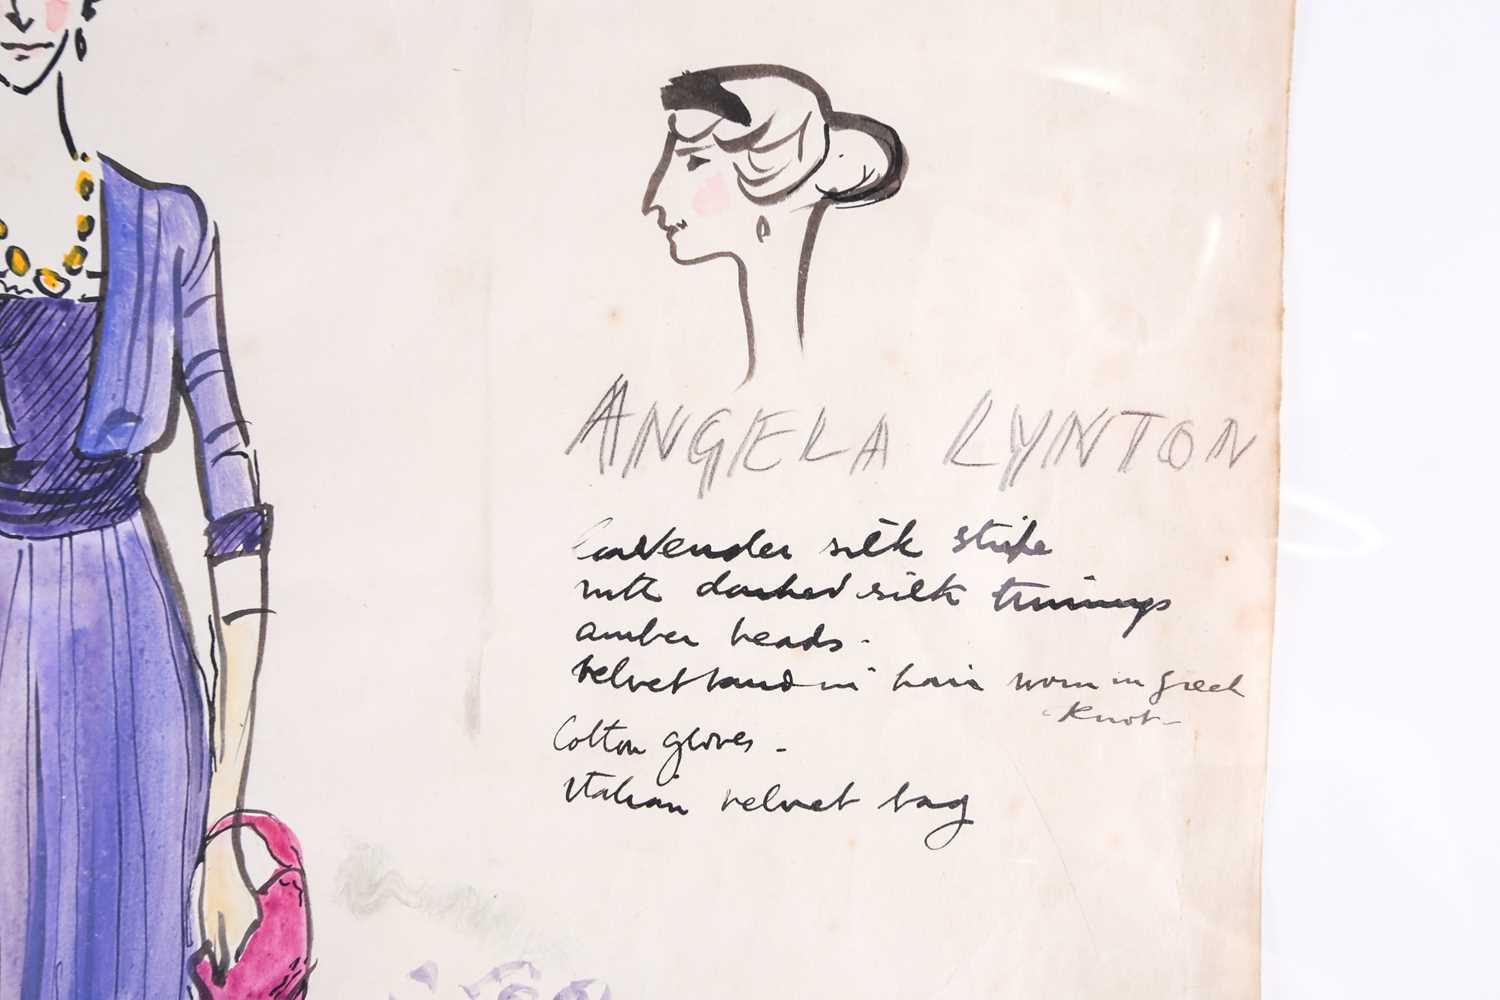 ANGELA LYNTON
lavender silk stripe
with darker silk trimings
amber beads -
velvet band in hair worn in greek
Knot -
Cotton gloves -
Italian velvet bag